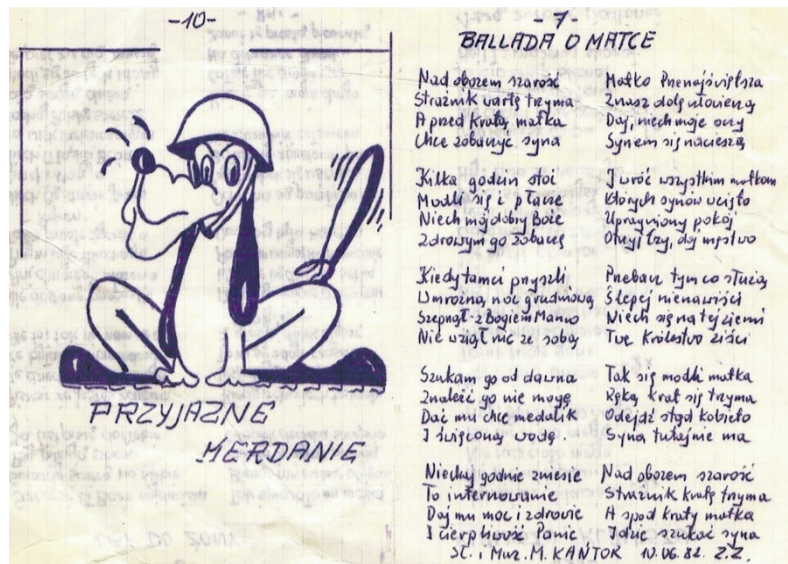 -10-
PRZYJAZNE
MERDANIE
-7-
BALLADA O MATCE
Nad obozem szarość
Strażnik wartę trzyma
A przed kratą matka
Chce zobaczyć syna
Kilka godzin stoi
Modli się i płacze
Niech mój dobry Boże
Zdrowym go zobaczę
Kiedy tamci przyszli
W mroźną, noc grudniową
Szepnął - z Bogiem Mamo
Nie wziął nic ze sobą
Szukam go od dawna
Znaleźć go nie mogę
Dać mu chcę medalik
I święconą wodę.
Niechaj godnie zniesie
To internowanie
Daj mu moc i zdrowie
I cierpliwość Panie,
Matko Przenajświętsza
Znasz dolę człowieczą
Daj, niech moje oczy
Synem się nacieszą
I wróć wszystkim matkom
Których synów wzięto
Upragniony pokój
Otrzyj łzy, daj męstwo
Przebacz tym co służą
Ślepej nienawiści
Niech się na tej ziemi
Twe Królestwo ziści
Tak się modli matka
Ręką krat się trzyma
Odejdź stąd kobieto
Syna tutaj nie ma
Nad obozem szarość
Strażnik kratę trzyma
A spod kraty matka
Idzie szukać syna
Sł. i Muz. M. KANTOR 10.06.82. Z.Z.